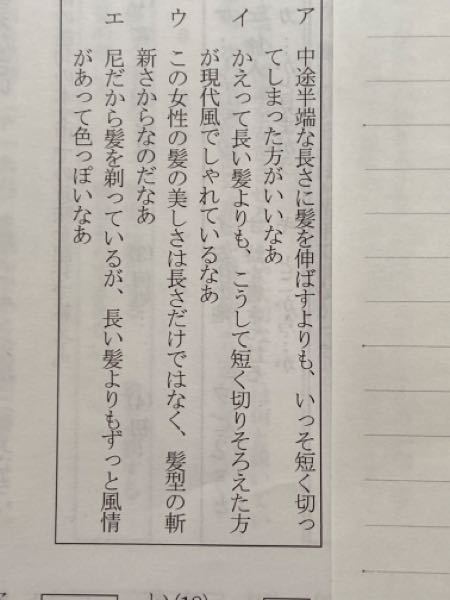 ア　中途半端な長さに髪を伸ばすよりも、いっそ短く切っ
てしまった方がいいなあ
イ　かえって長い髪よりも、こうして短く切りそろえた方
が現代風でしゃれているなあ
ウ　この女性の髪の美しさは長さだけではなく、髪型の斬
新さからなのだなあ
エ　尼だから髪を剃っているが、長い髪よりもずっと風情
があって色っぽいなあ